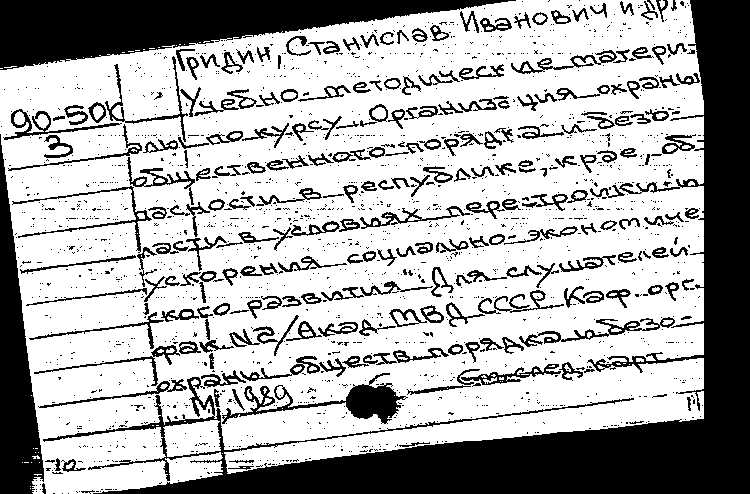 Гридин, Станислав Иванович и др.
90-50к
3
Учебно-методические матери-
алы по курсу „Организация охраны
общественного порядка и безо-
пасности в республике, крае, об-
ласти в условиях перестройки и
ускорения социально-экономиче
ского развития". Для слушателей
фак №2/Акад. МВД СССР Каф. орг.
охраны обществ. порядка и безо-
... М., 1989
См. след. карт
10